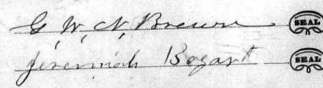 G. W. N. Brown SEAL
Jeremiah Bogart SEAL